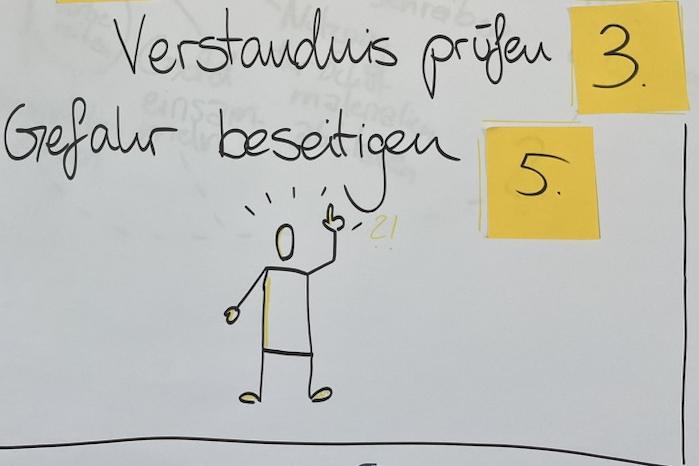 Verständnis prüfen 3.
Gefahr beseitigen 5.
?!